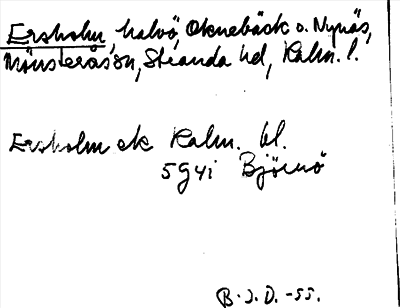 Ersholm, halvö, Oknebäck o. Nynäs,
Mönsterås sn, Stranda hd, Kalm. l.
Ersholm ek Kalm. bl.
5G4i Björnö
B. J. D. -55.